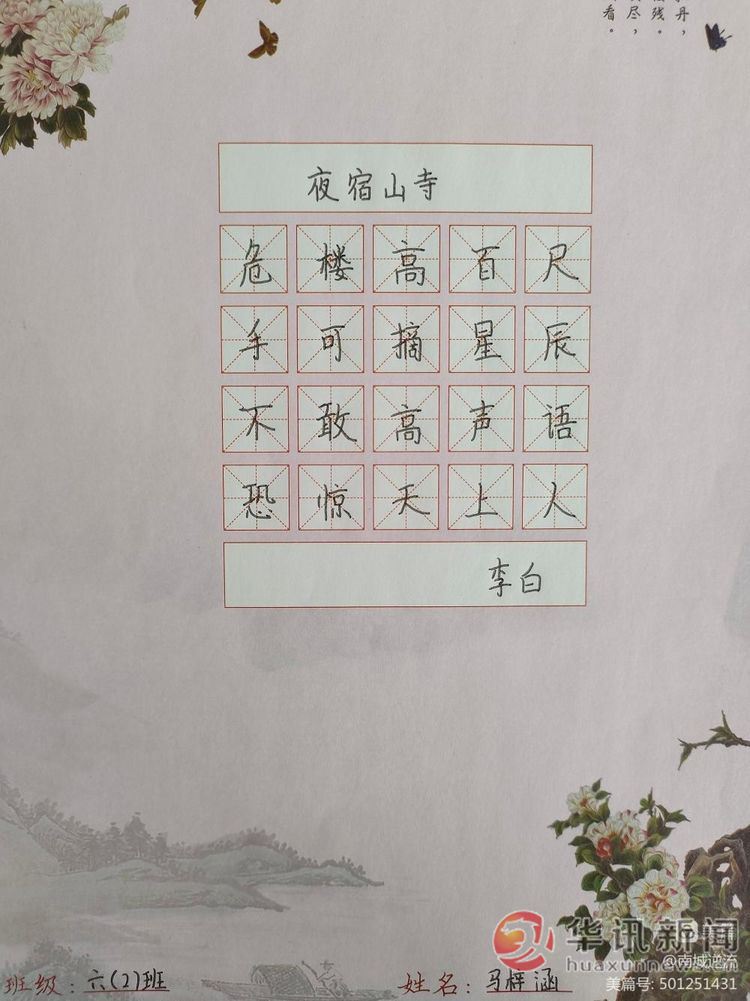 夜宿山寺
危楼高百尺
手可摘星辰
不敢高声语
恐惊天上人
李白
班级：六(2)班
姓名：马梓涵
华讯新闻
huaxunnews.cn
@南城逆流
美篇号: 501251431